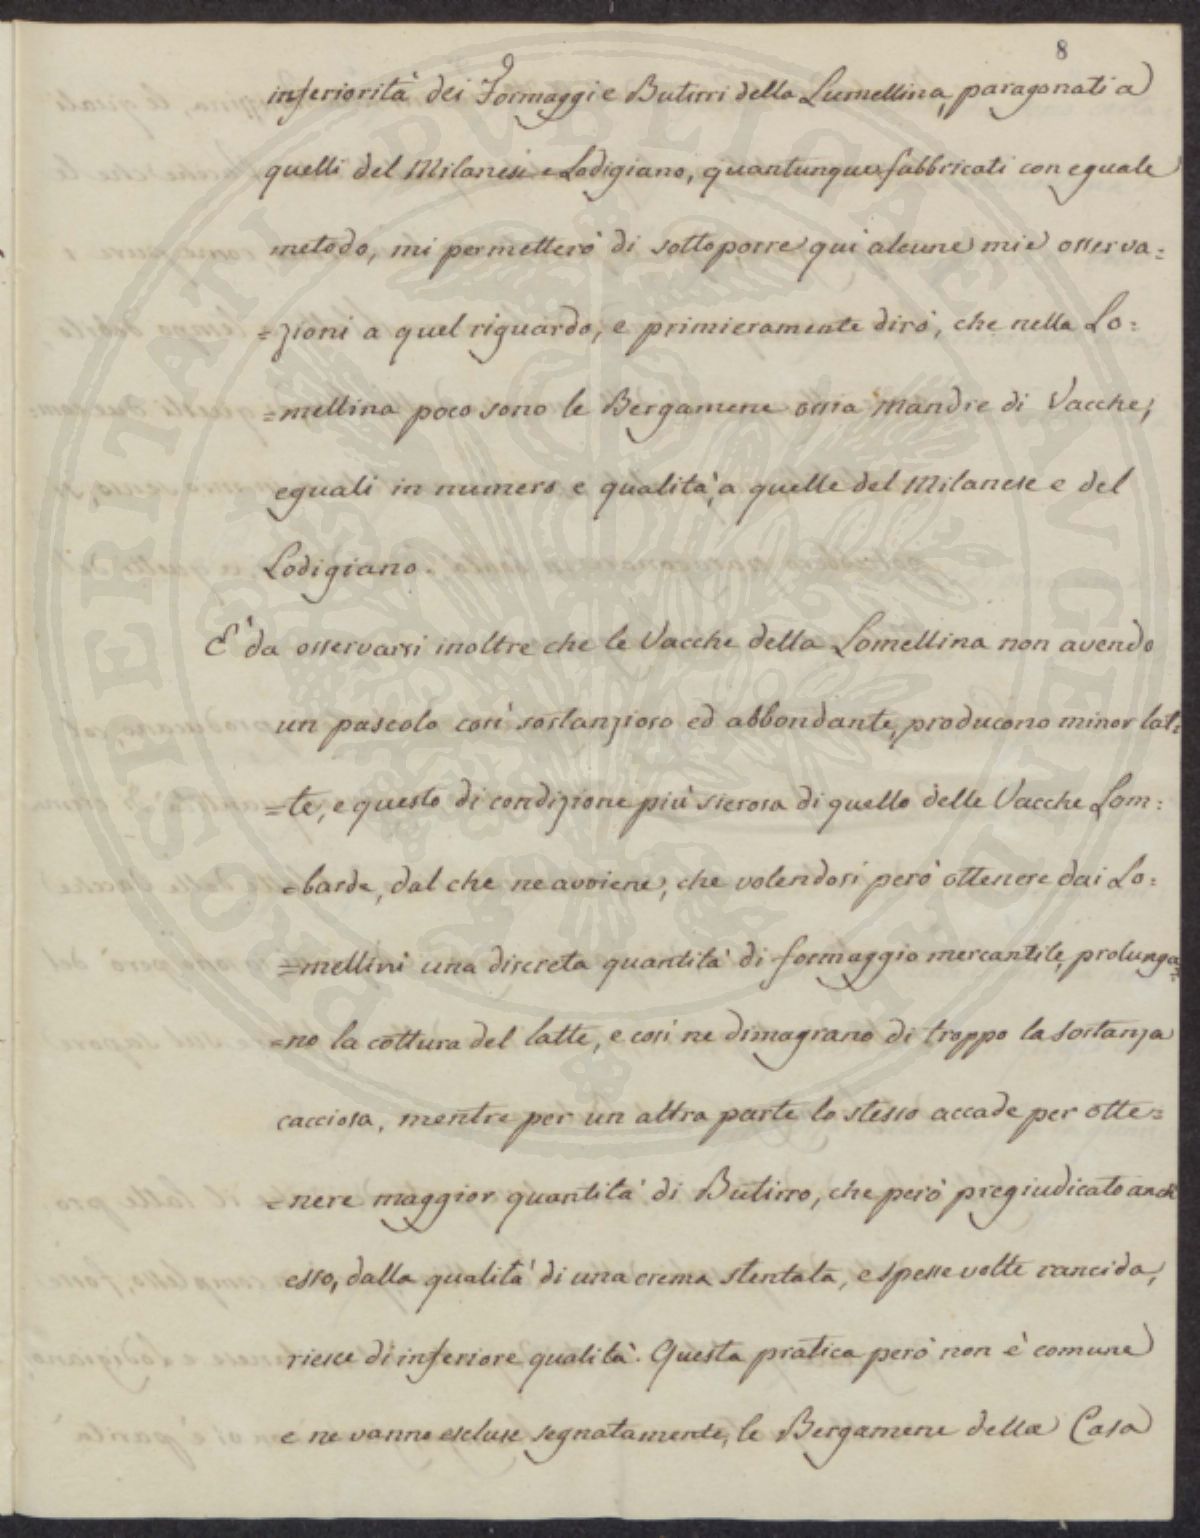 8
inferiorità dei Formaggi e Butirri della Lumellina, paragonati a
quelli del Milanese e Lodigiano, quantunque fabbricati con eguale
metodo, mi permetterò di sottoporre qui alcune mie osserva=
=zioni a quel riguardo, e primieramente dirò, che nella Lo=
=mellina poco sono le Bergamene ossia Mandre di Vacche,
eguali in numero e qualità, a quelle del Milanese e del
Lodigiano.
E' da osservarsi inoltre che le Vacche della Lomellina non avendo
un pascolo così sostanzioso ed abbondante, producono minor lat=
=te, e questo di condizione più sierosa di quello delle Vacche Lom=
=barde, dal che ne avviene, che volendosi però ottenere dai Lo=
=mellini una discreta quantità di formaggio mercantile, prolunga=
=no la cottura del latte, e così ne dimagrano di troppo la sostanza
cacciosa, mentre per un altra parte lo stesso accade per otte=
=nere maggior quantità di Butirro, che però pregiudicato anch
esso, dalla qualità di una crema stentata, e spesse volte rancida,
riesce di inferiore qualità. Questa pratica però non è comune
e ne vanno escluse segnatamente, le Bergamene della Casa
PROSPERITATI PUBLICAE AUGENDAE